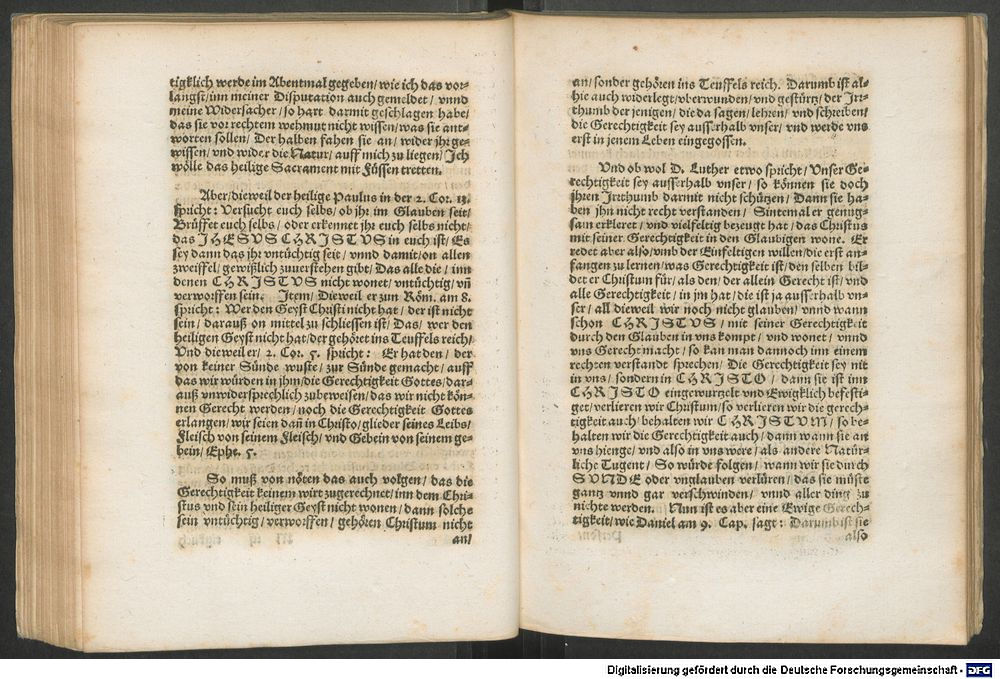 tigklich werde im Abentmal gegeben/ wie ich das vor-
langst/ inn meiner Disputation auch gemeldet/ vnnd
meine Widersacher/ so hart darmit geschlagen habe/
das sie vor rechtem wehmut nicht wissen/ was sie ant-
worten sollen/ Der halben fahen sie an/ wider jhr ge-
wissen/ vnd wider die Natur/ auff mich zu liegen/ Ich
wölle das heilige Sacrament mit Füssen tretten.
Aber/ dieweil der heilige Paulus in der 2. Cor. 13.
spricht: Versucht euch selbs/ ob jhr im Glauben seit/
Brüffet euch selbs/ oder erkennet jhr euch selbs nicht/
das JHESVS CHRISTVS in euch ist/ Es
sey dann das jhr vntüchtig seit/ vnnd damit/ on allen
zweiffel/ gewißlich zuuerstehen gibt/ Das alle die/ inn
denen CHRISTVS nicht wonet/ vntüchtig/ vñ
verworffen sein. Item/ Dieweil er zum Röm. am 8.
spricht: Wer den Geyst Christi nicht hat/ der ist nicht
sein/ darauß on mittel zu schliessen ist/ Das/ wer den
heiligen Geyst nicht hat/ der gehöret ins Teuffels reich/
Vnd dieweil er/ 2. Cor. 5. spricht: Er hat den/ der
von keiner Sünde wuste/ zur Sünde gemacht/ auff
das wir würden in jhm/ die Gerechtigkeit Gottes/ dar-
auß vnwidersprechlich zubeweisen/ das wir nicht kön-
nen Gerecht werden/ noch die Gerechtigkeit Gottes
erlangen/ wir seien dañ in Christo/ glieder seines Leibs/
Fleisch von seinem Fleisch/ vnd Gebein von seinem ge-
bein/ Ephe. 5.
So muß von nöten das auch volgen/ das die
Gerechtigkeit keinem wirt zugerechnet/ inn dem Chri-
stus vnd sein heiliger Geyst nicht wonen/ dann solche
sein vntüchtig/ verworffen/ gehören Christum nicht
an/
an/ sonder gehören ins Teuffels reich. Darumb ist al-
hie auch widerlegt/ vberwunden/ vnd gestürtz/ der Irr-
thumb der jenigen/ die da sagen/ lehren/ vnd schreiben/
die Gerechtigkeit sey ausserhalb vnser/ vnd werde vns
erst in jenem Leben eingegossen.
Vnd ob wol D. Luther etwo spricht/ Vnser Ge-
rechtigkeit sey ausserhalb vnser/ so können sie doch
jhren Irrthumb darmit nicht schützen/ Dann sie ha-
ben jhn nicht recht verstanden/ Sintemal er genug-
sam erkleret/ vnd vielfeltig bezeugt hat/ das Christus
mit seiner Gerechtigkeit in den Glaubigen wone. Er
redet aber also/ vmb der Einfeltigen willen/ die erst an-
fangen zu lernen/ was Gerechtigkeit ist/ den selben bil-
det er Christum für/ als den/ der allein Gerecht ist/ vnd
alle Gerechtigkeit/ in jm hat/ die ist ja ausserhalb vn-
ser/ all dieweil wir noch nicht glauben/ vnnd wann
schon CHRISTVS/ mit seiner Gerechtigkeit
durch den Glauben in vns kompt/ vnd wonet/ vnnd
vns Gerecht macht/ so kan man dannoch inn einem
rechten verstandt sprechen/ Die Gerechtigkeit sey nit
in vns/ sondern in CHRISTO/ dann sie ist inn
CHRISTO eingewurtzelt vnd Ewigklich befesti-
get/ verlieren wir Christum/ so verlieren wir die gerech-
tigkeit auch/ behalten wir CHRISTVM/ so be-
halten wir die Gerechtigkeit auch/ dann wann sie an
vns hienge/ vnd also in vns were/ als andere Natür-
liche Tugent/ So würde folgen/ wann wir sie durch
SVNDE oder vnglauben verlüren/ das sie müste
gantz vnnd gar verschwinden/ vnnd aller ding zu
nichte werden. Nun ist es aber eine Ewige Gerech-
tigkeit/ wie Daniel am 9. Cap. sagt: Darumb ist sie
also
Digitalisierung gefördert durch die Deutsche Forschungsgemeinschaft - DFG